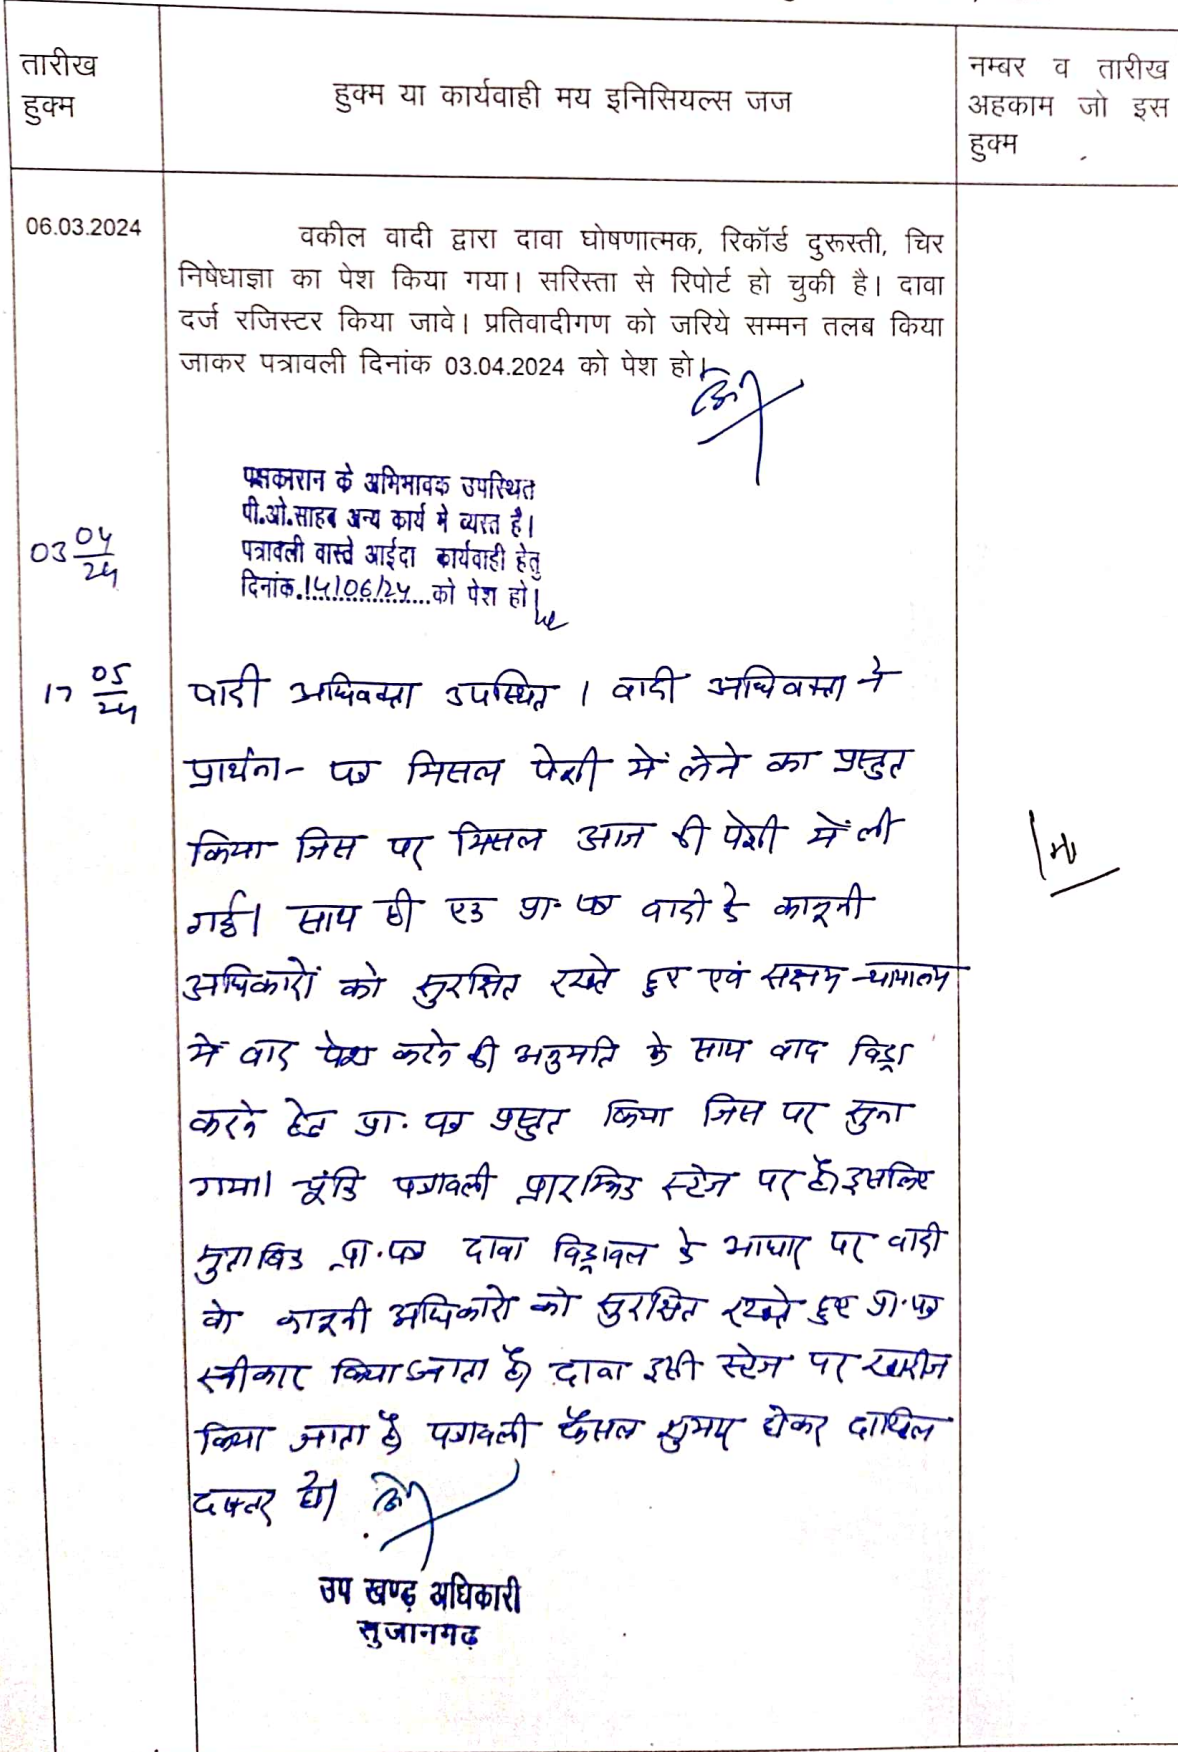 तारीख
हुक्म
हुक्म या कार्यवाही मय इनिसियल्स जज
नम्बर व तारीख
अहकाम जो इस
हुक्म
06.03.2024
वकील वादी द्वारा दावा घोषणात्मक, रिकॉर्ड दुरूस्ती, चिर
निषेधाज्ञा का पेश किया गया। सरिस्ता से रिपोर्ट हो चुकी है। दावा
दर्ज रजिस्टर किया जावे। प्रतिवादीगण को जरिये सम्मन तलब किया
जाकर पत्रावली दिनांक 03.04.2024 को पेश हो।
03 04/24
पक्षकारान के अभिभावक उपस्थित
पी.ओ.साहब अन्य कार्य मे व्यस्त है।
पत्रावली वास्ते आईदा कार्यवाही हेतु
दिनांक.14/06/24...को पेश हो।
17 05/24
वादी अधिवक्ता उपस्थित । वादी अधिवक्ता ने
प्रार्थना- पत्र मिसल पेशी में लेने का प्रस्तुत
किया जिस पर मिसल आज ही पेशी में ली
गई। साथ ही एक प्रा. पत्र वादी के कानूनी
अधिकारों को सुरक्षित रखते हुए एवं सक्षम न्यायालय
में वाद पेश करने की अनुमति के साथ वाद विड्रा
करने हेतु प्रा. पत्र प्रस्तुत किया जिस पर सुना
गया। चूंकि पत्रावली प्रारम्भिक स्टेज पर है। इसलिए
मुताबिक प्रा.पत्र दावा विड्रावल के आधार पर वादी
के कानूनी अधिकारो को सुरक्षित रखते हुए प्रा.पत्र
स्वीकार किया जाता है। दावा इसी स्टेज पर खारीज
किया जाता है। पत्रावली फैसल शुमार होकर दाखिल
दफ्तर हो।
उप खण्ड़ अधिकारी
सुजानगढ़